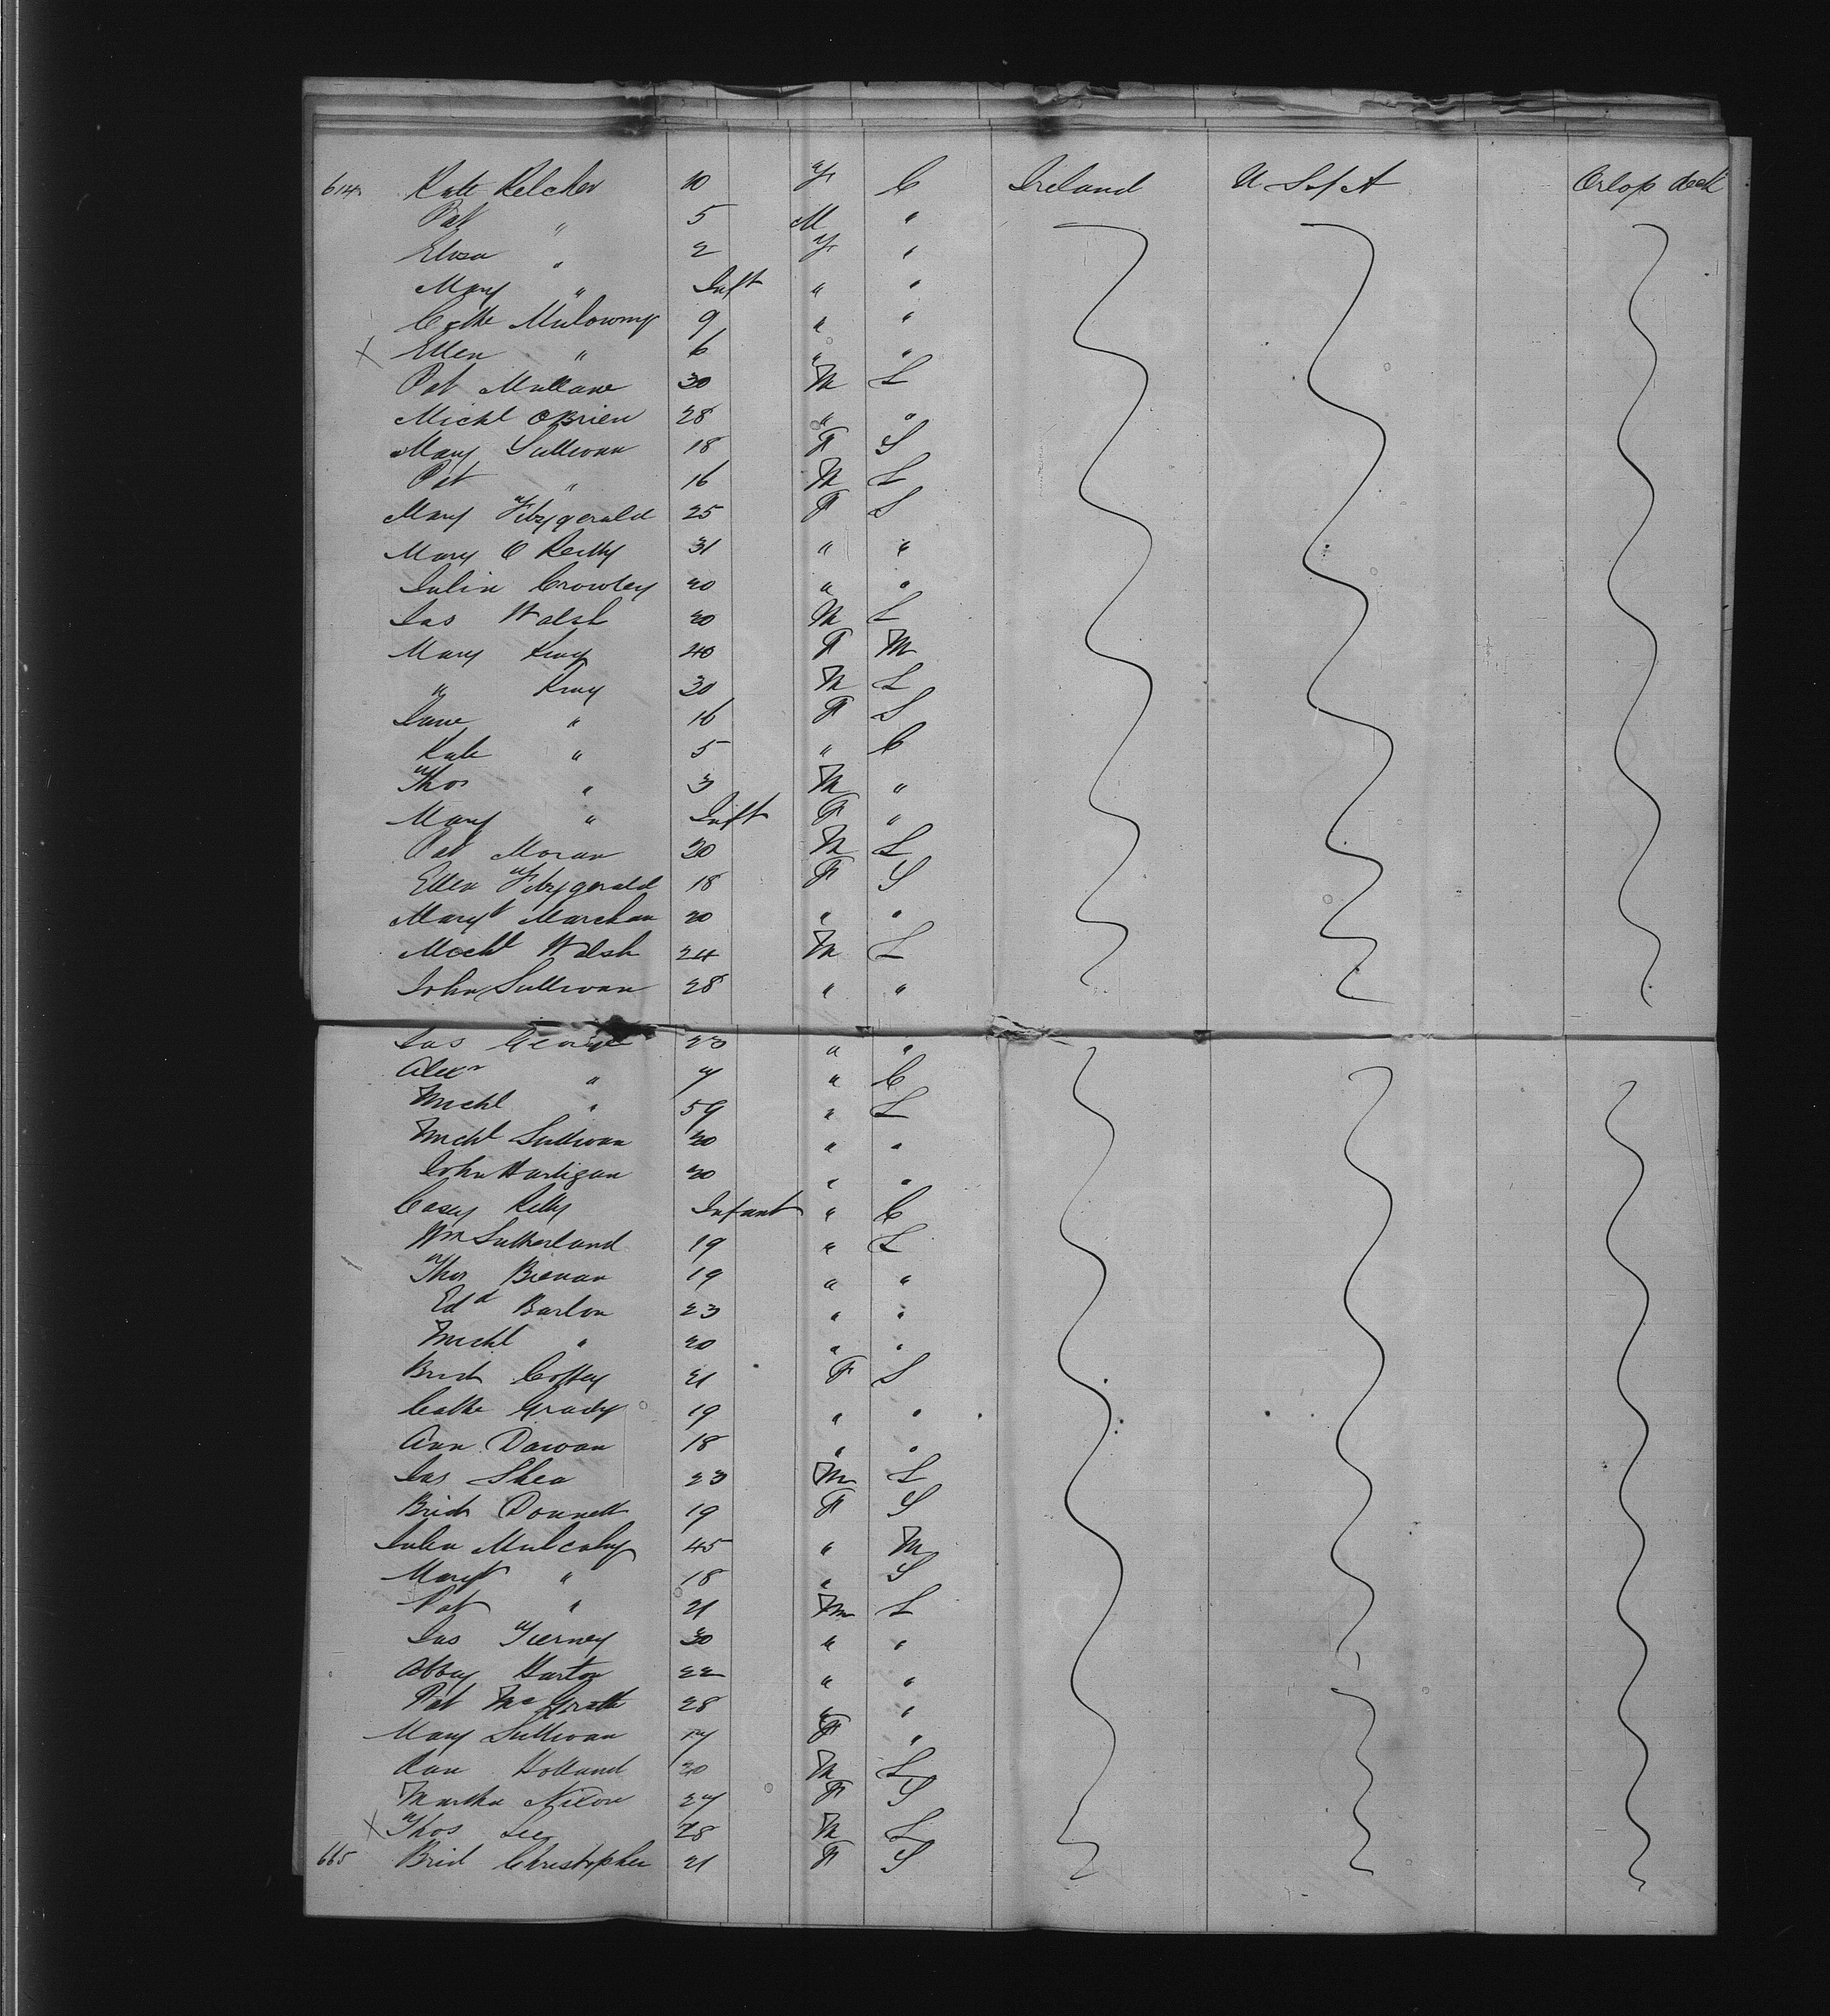 614 Kate Kelcher 10 F C Ireland U S of A Orlop deck
Pat " 5 M "
Eliza " 2 F "
Mary " Inft " "
Cathe Mulowny 9 " "
X Ellen " 6 " "
Pat Mullane 30 M L
Michl OBrien 28 " "
Mary Sullivan 18 F S
Pat " 16 M L
Mary Fitzgerald 25 F S
Mary O Reilly 31 " "
Julia Crowley 20 " "
Jas Walsh 20 M L
Mary King 40 F M
" King 30 M L
Jane " 16 F S
Kate " 5 " C
Thos " 3 M "
Mary " Inft F "
Pat Moran 20 M L
Ellen Fitzgerald 18 F S
Margt Marchan 20 " "
Michl Walsh 24 M L
John Sullivan 28 " "
Jas George 23 " "
Alexr " 7 " C
Michl " 59 " L
Michl Sullivan 20 " "
John Hartigan 20 " "
Casey Kelly Infant " C
Wm Sutherland 19 " L
Thos Brenan 19 " "
Edd Barlon 23 " "
Michl " 20 " "
Brid Coffey 21 F S
Cathe Grady 19 " "
Ann Dawan 18 " "
Jas Shea 23 M L
Brid Donnell 19 F S
Julia Mulcahy 45 " M
Margt " 18 " S
Pat " 21 M L
Jas Tierney 30 " "
Abbey Hartry 22 " "
Pat McGrath 28 " "
Mary Sullivan 17 F "
Holland 20 M L
Martha Nixon 27 F S
X Thos Lee 28 M L
665 Brid Christopher 21 F S